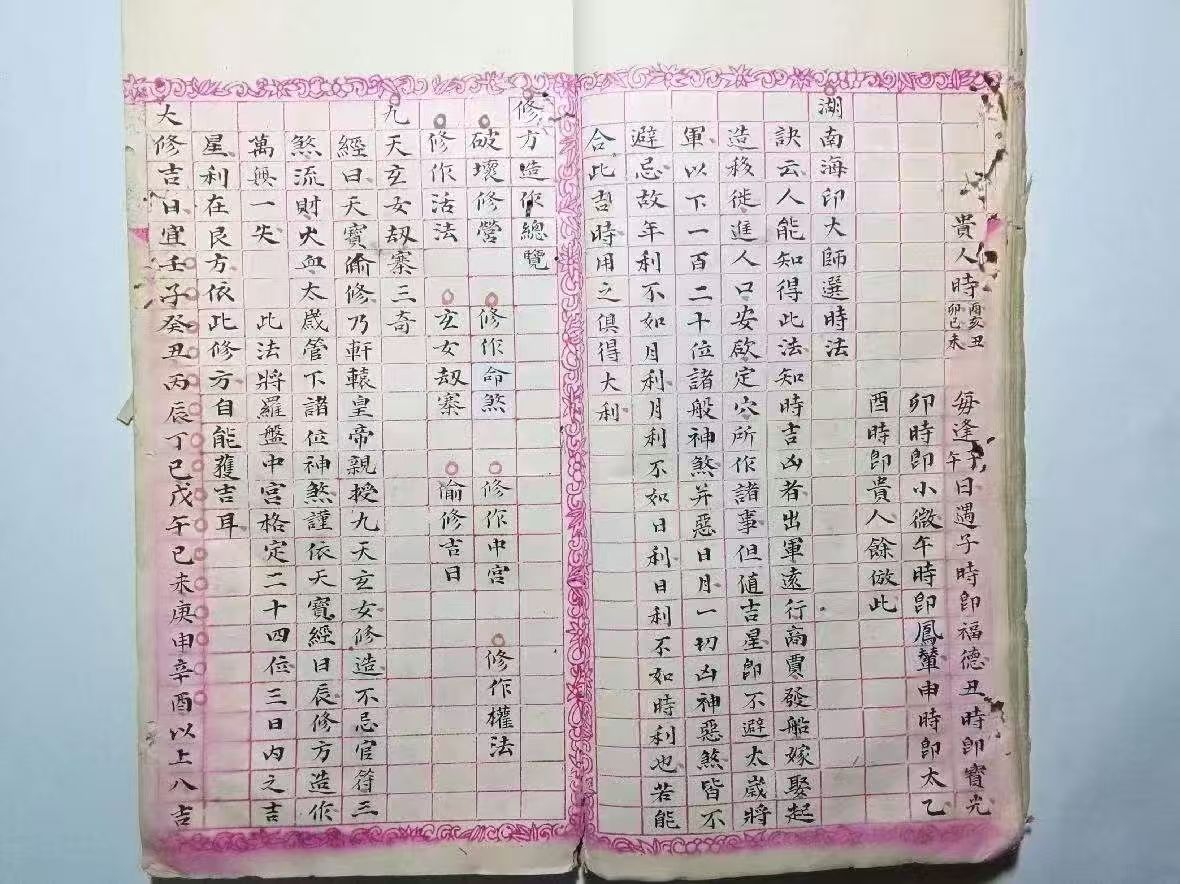 貴人時酉亥丑卯巳未 每逢子午日遇子時卽福德丑時卽寶光
卯時卽小微午時卽鳳輦申時卽太乙
酉時卽貴人餘倣此
湖南海印大師選時法
訣云人能知得此法知時吉凶者出軍遠行商賈發船嫁娶起
造移徙進人口安欿定穴所作諸事但値吉星卽不避太歲將
軍以下一百二十位諸般神煞并惡日月一切凶神惡煞皆不
避忌故年利不如月利月利不如日利日利不如時利也若能
合此吉時用之俱得大利
修方造作總覽
破壞修營 修作命煞 修作中宮 修作權法
修作活法 玄女刼寨 偷修吉日
九天玄女刼寨三奇
經曰天寶偷修乃軒轅皇帝親授九天玄女修造不忌官符三
煞流財火血太歲管下諸位神煞謹依天寶經日辰修方造作
萬無一失 此法將羅盤中宮格定二十四位三日內之吉
星利在艮方依此修方自能獲吉耳
大修吉日宜壬子癸丑丙辰丁巳戊午己未庚申辛酉以上八吉